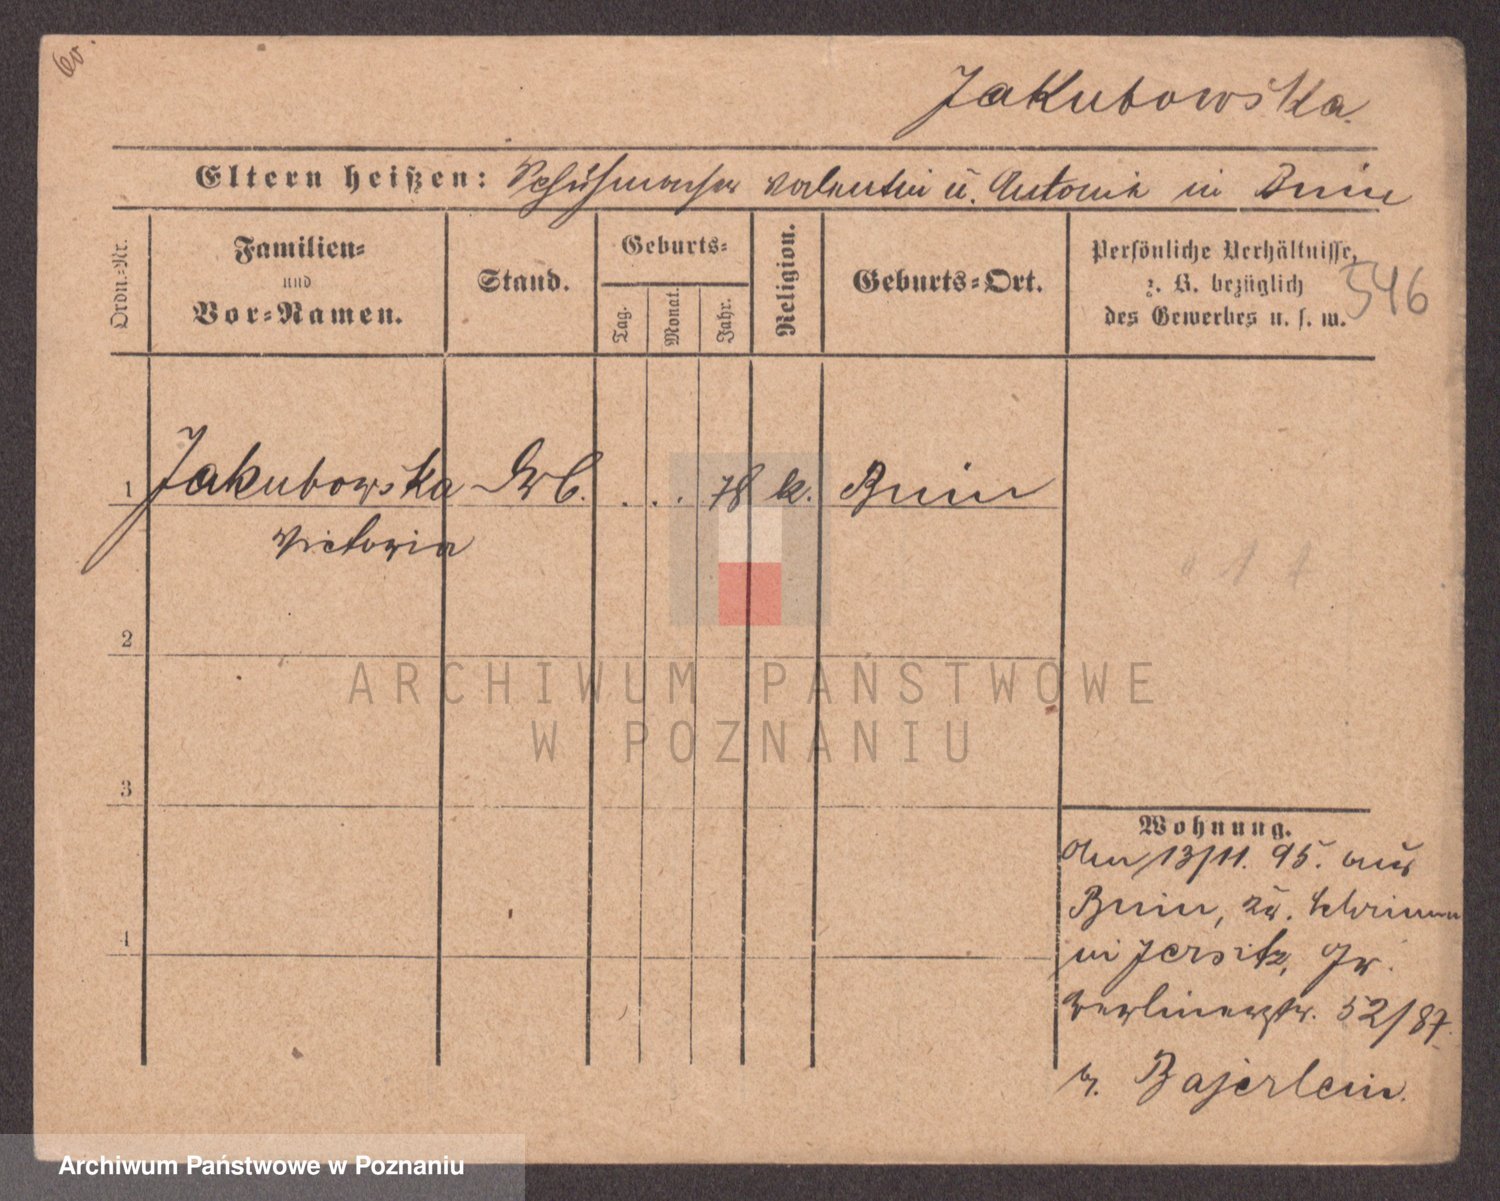 Jakubowska.
Eltern heißen: Schuhmacher Valentin u. Antonie in Bnin
Ordn.=Nr.
Familien=
und
Vor=Namen.
Stand.
Geburts=
Tag.
Monat.
Jahr.
Religion.
Geburts=Ort.
Persönliche Verhältnisse,
z. B. bezüglich
des Gewerbes u. s. w.
546
1 Jakubowska . . . 78 k. Bnin
Victoria
2
3
4
Wohnung.
den 13/11. 95. aus
Bnin, zu.
in Jersitz, Gr.
Berlinerstr. 52/87.
b. Bajerlein.
ARCHIWUM PAŃSTWOWE
W POZNANIU
Archiwum Państwowe w Poznaniu